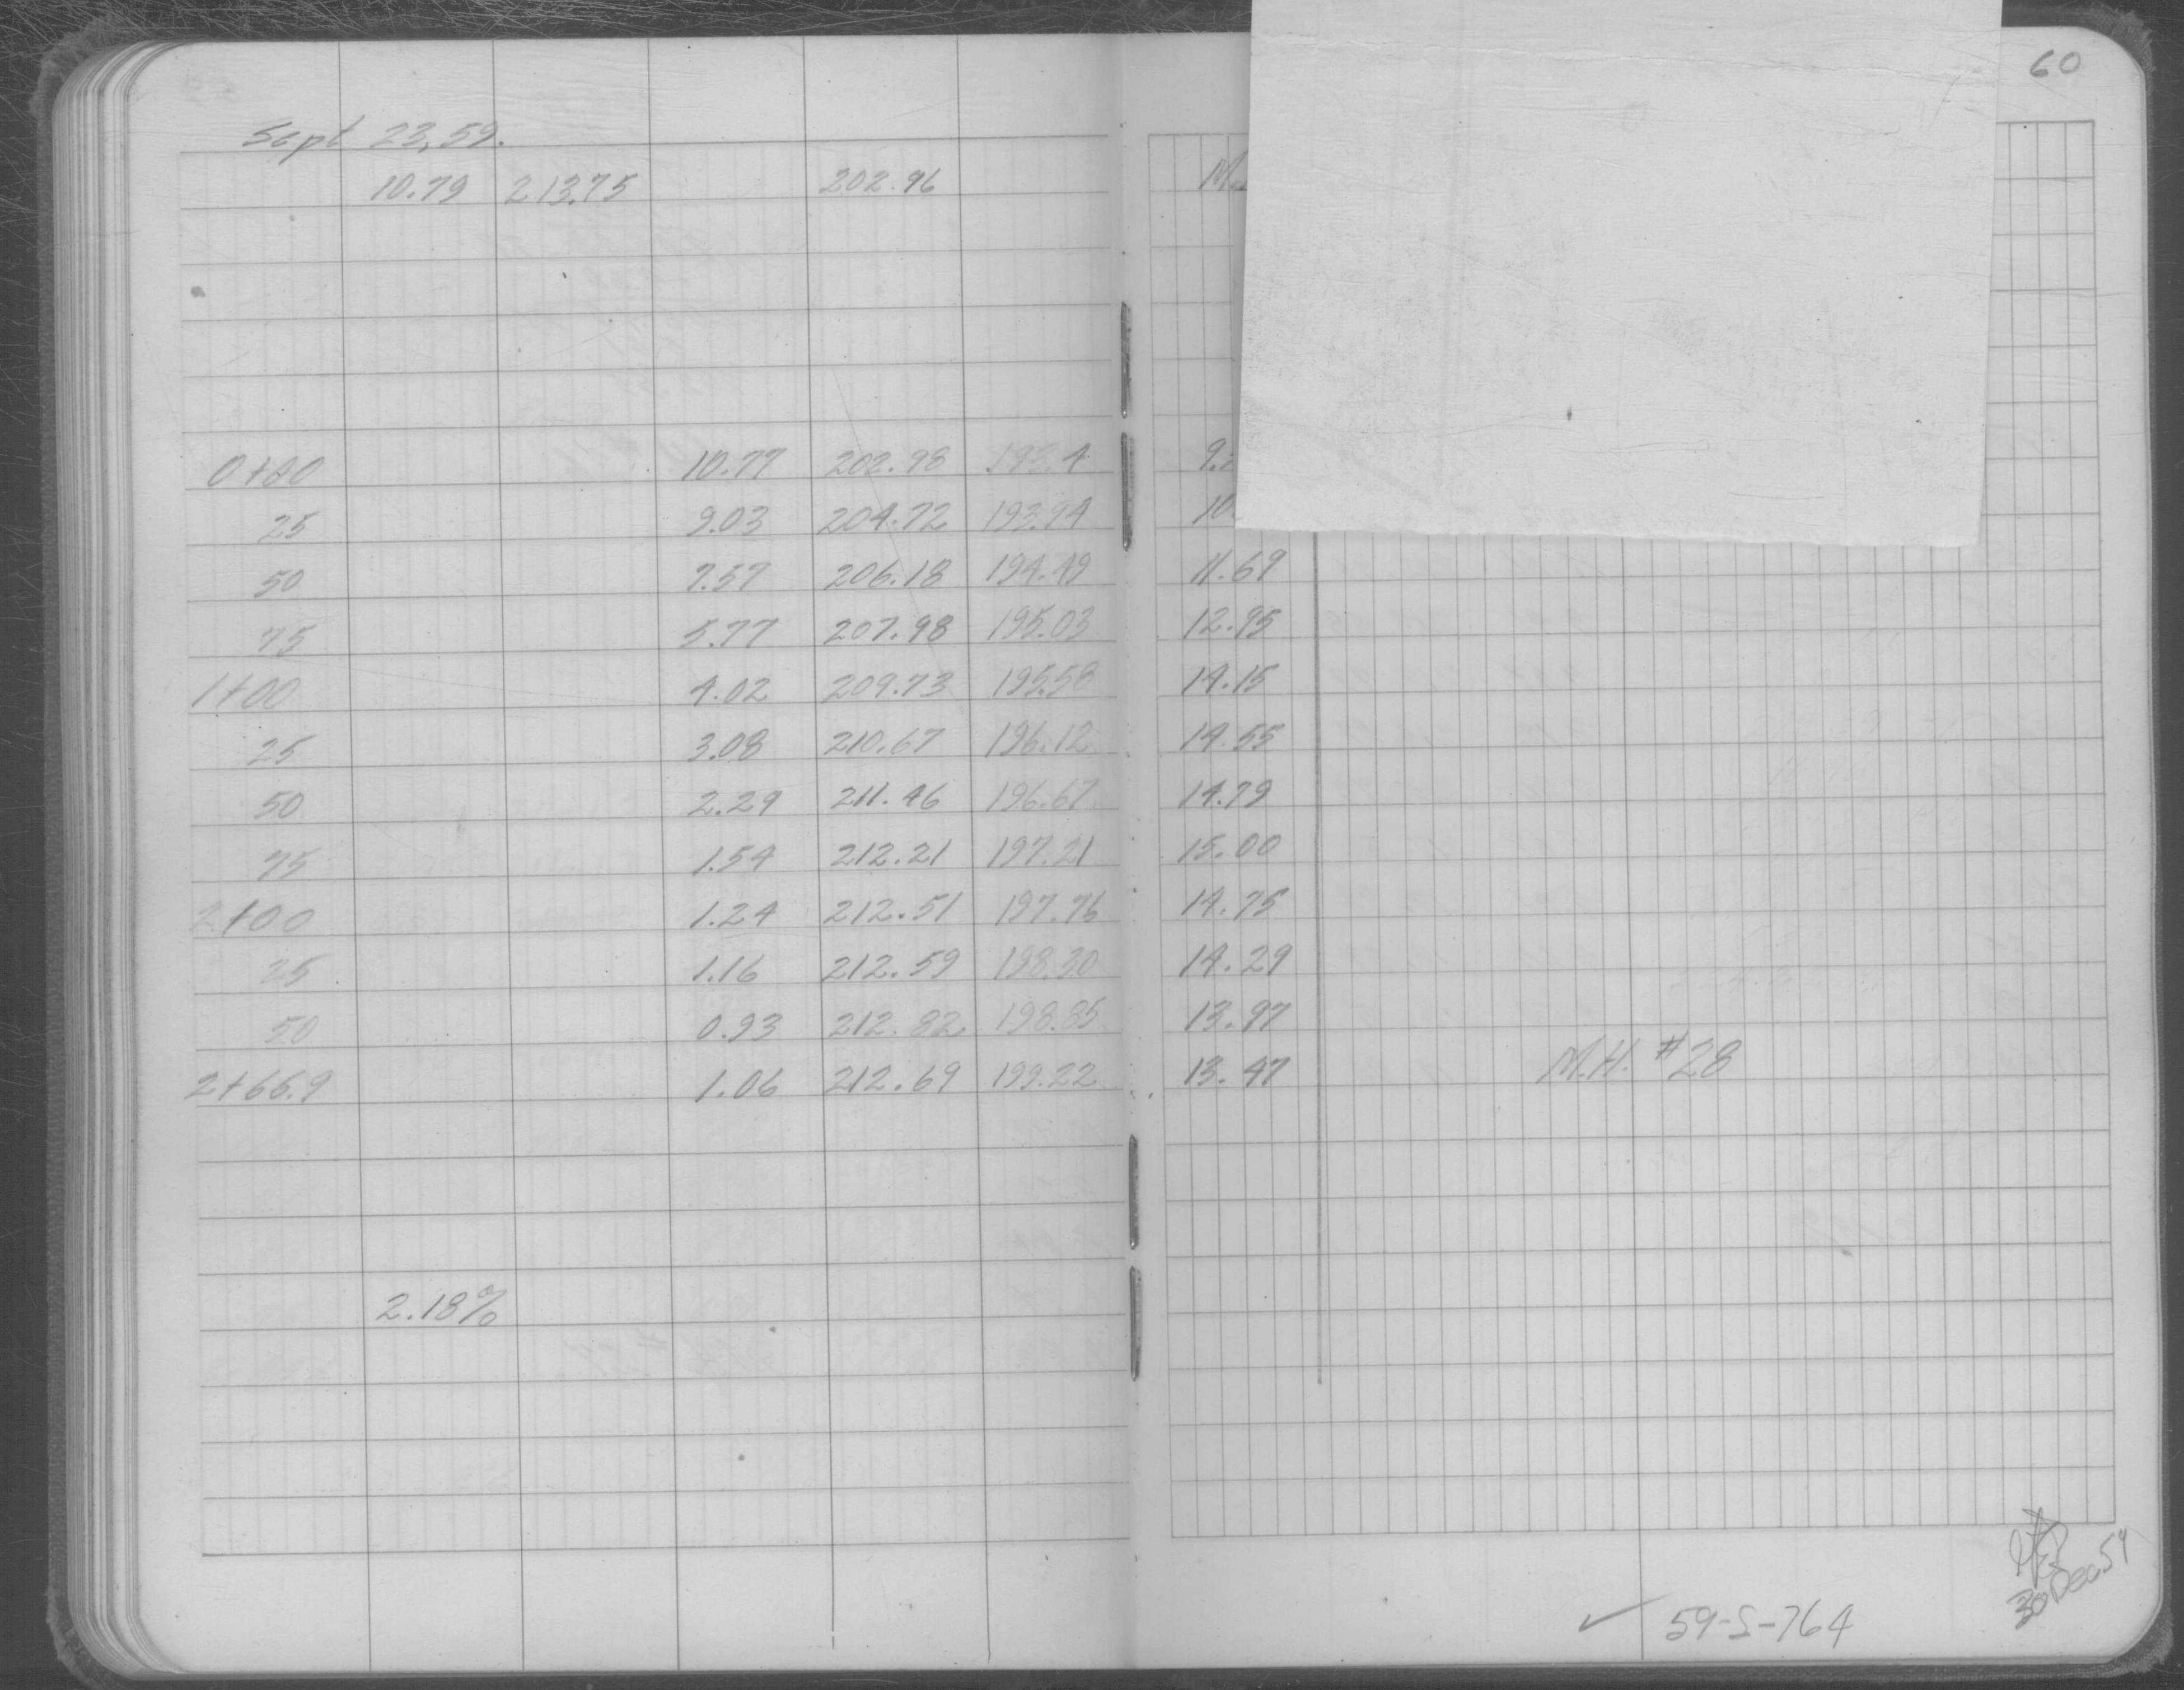 60
Sept 23, 59.
10.79 213.75 202.96
0+00 10.77 202.98 193.4 9.
25 9.03 204.72 193.94 10.
50 7.57 206.18 194.49 11.69
75 5.77 207.98 195.03 12.95
1+00 4.02 209.73 195.58 14.15
25 3.08 210.67 196.12 14.55
50 2.29 211.46 196.67 14.79
75 1.54 212.21 197.21 15.00
2+00 1.24 212.51 197.76 14.75
25 1.16 212.59 198.30 14.29
50 0.93 212.82 198.85 13.97
2+66.9 1.06 212.69 199.22 13.47 M.H. #28
2.18%
30 Dec 59
✓ 59-S-764